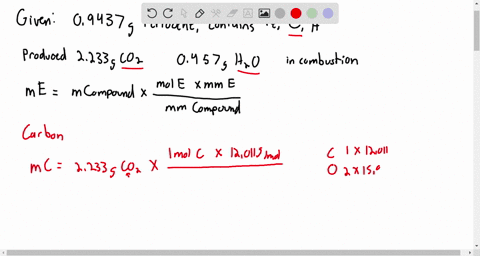 Given: 0.9437g ferrocene, contains Fe, C, H
Produced 2.233g CO₂ 0.457g H₂O in combustion
mE = mCompound × mol E × mm E
mm Compound
Carbon
mC = 2.233g CO₂ × 1mol C × 12.011g/mol
C 1 × 12.011
O 2 × 15.9